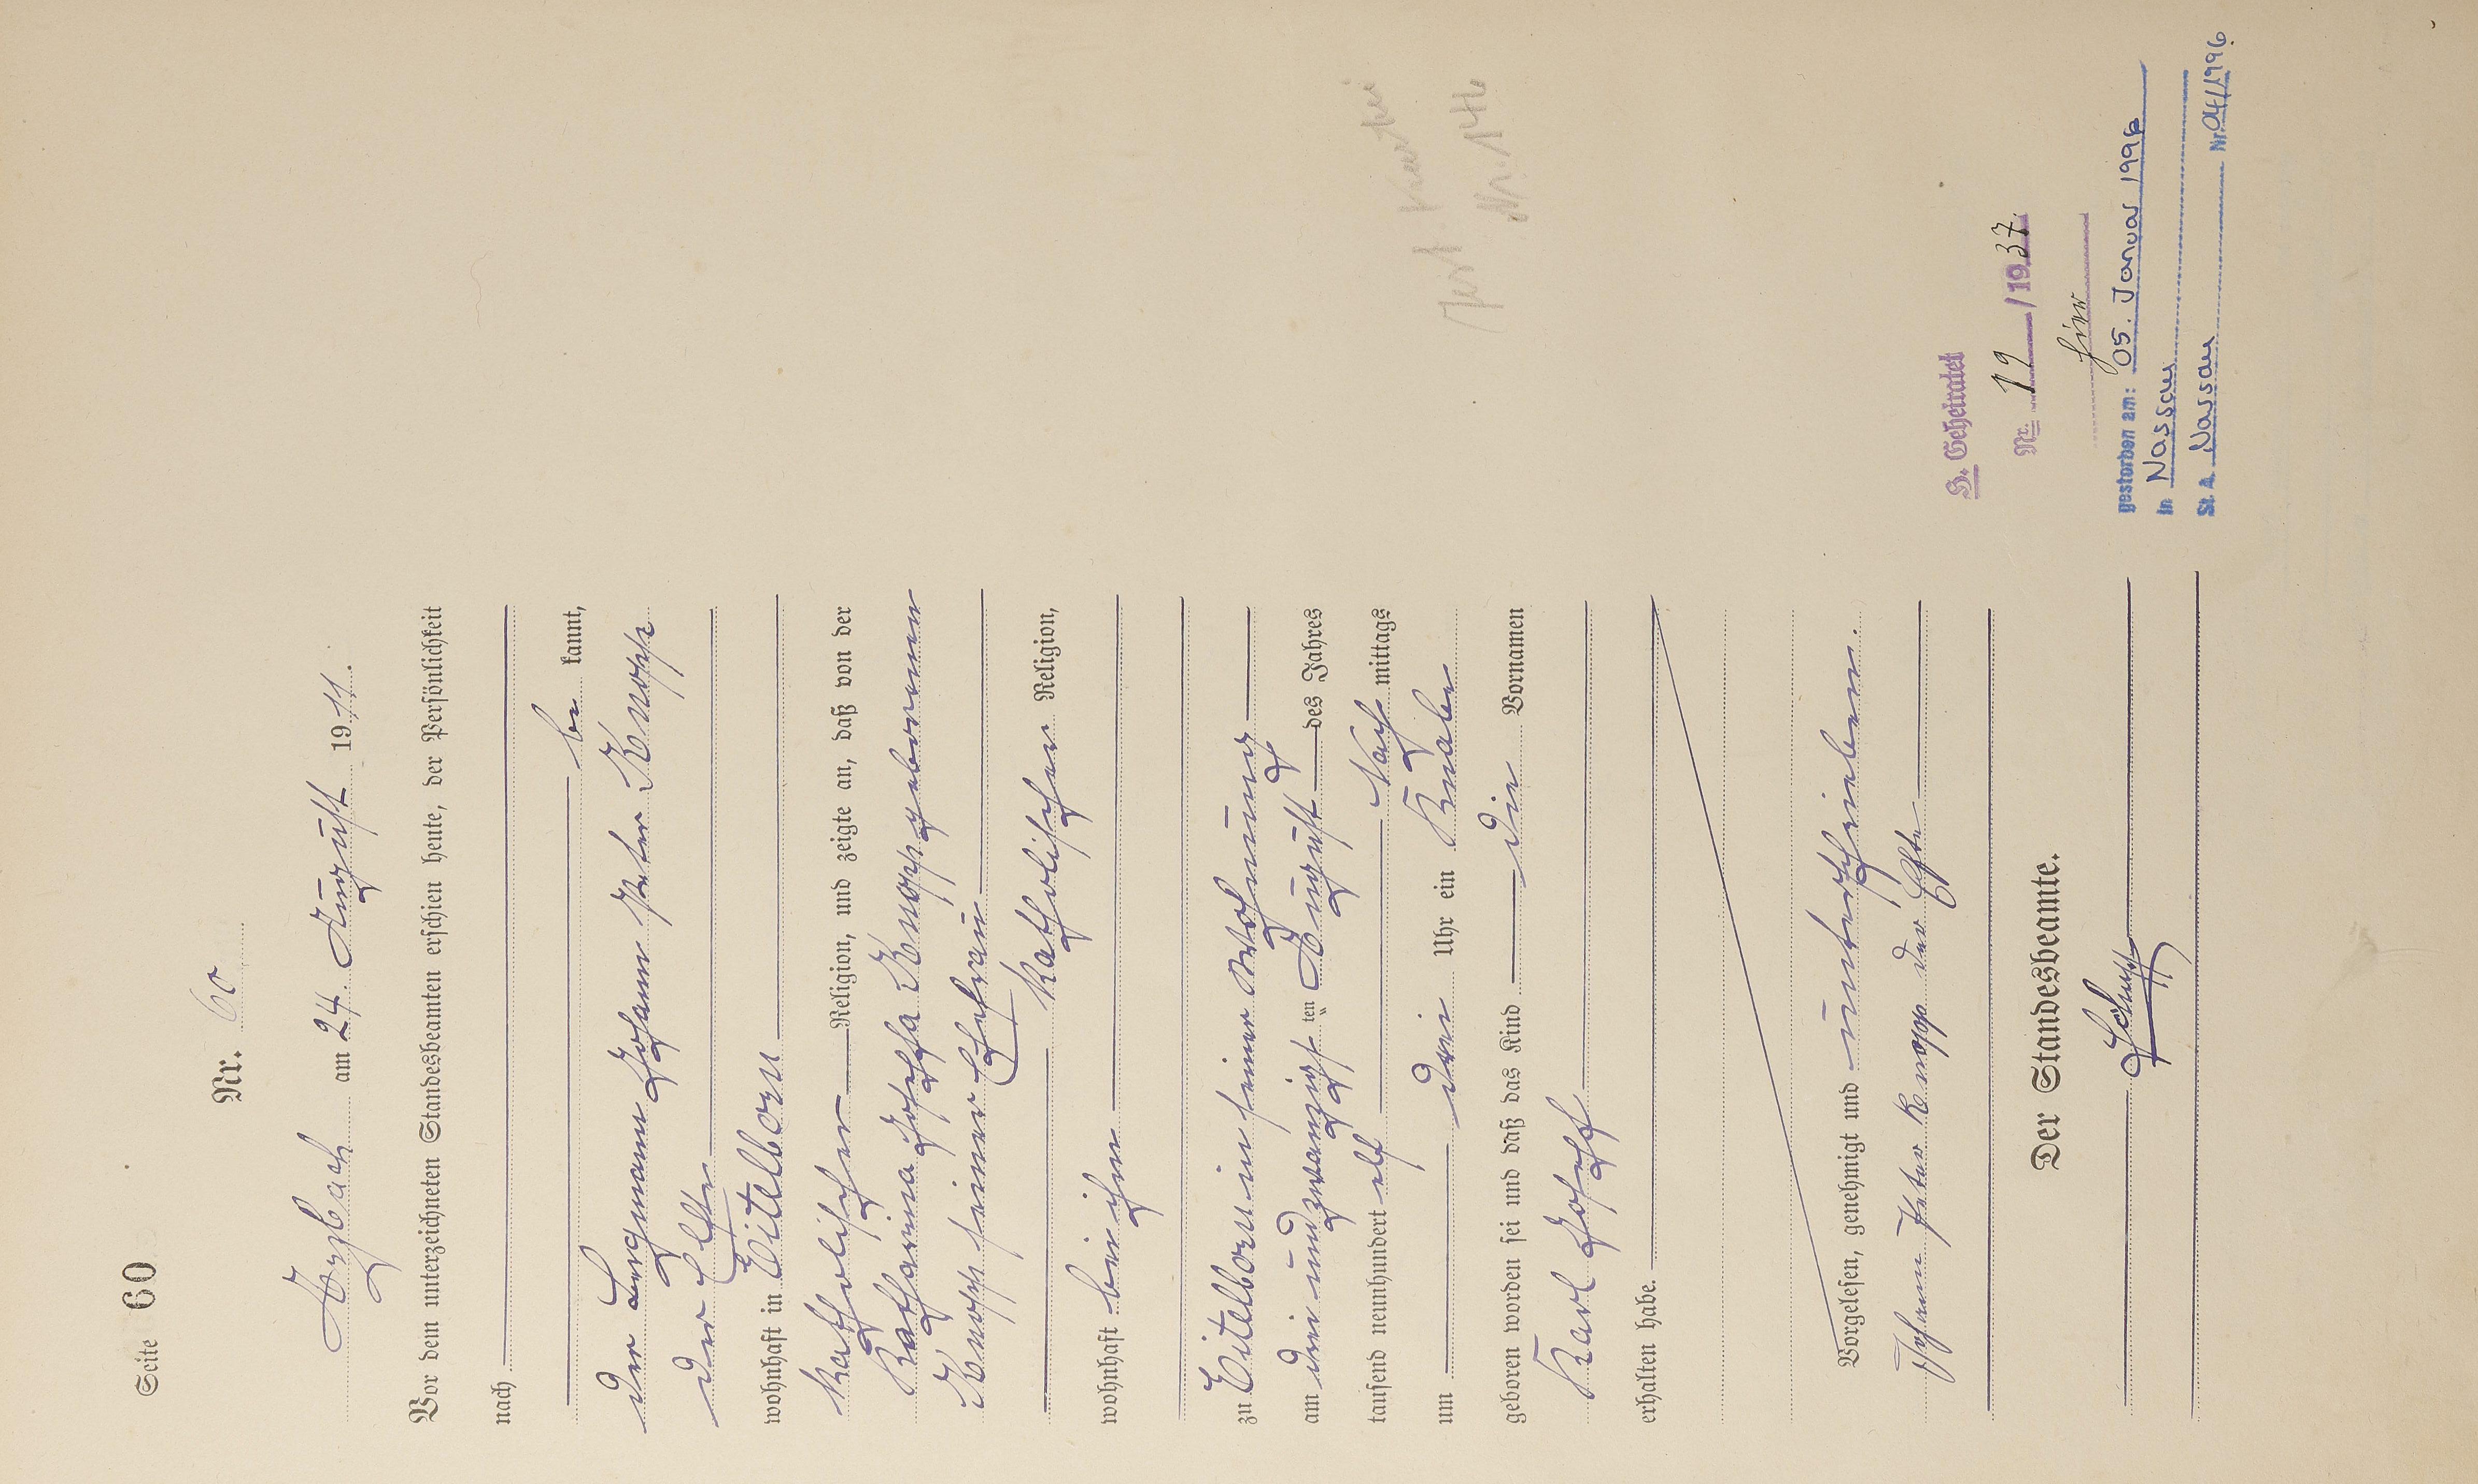 Seite 60
Nr. 60
Arzbach am 24. August 1911.
Vor dem unterzeichneten Standesbeamten erschien heute, der Persönlichkeit
nach
be kannt,
der Bergmann Johann Peter Knopp
der Elfte
wohnhaft in Eitelborn
katholischer Religion, und zeigte an, daß von der
Katharina Josepha Knopp geborenen
Knopp seiner Ehefrau
katholischer Religion,
wohnhaft bei ihm
zu Eitelborn in seiner Wohnung
am drei und zwanzigsten August des Jahres
tausend neunhundert elf Nach mittags
um drei Uhr ein Knabe
geboren worden sei und daß das Kind die Vornamen
Karl Joseph
erhalten habe.
Vorgelesen, genehmigt und unterschrieben.
Johann Peter Knopp der Elfte
Der Standesbeamte.
Nr. 146
H. Geheiratet
Nr. 12 /1937.
hier
gestorben am: 05. Januar 1996
in Nassau
St. A. Nassau Nr. 04/1996